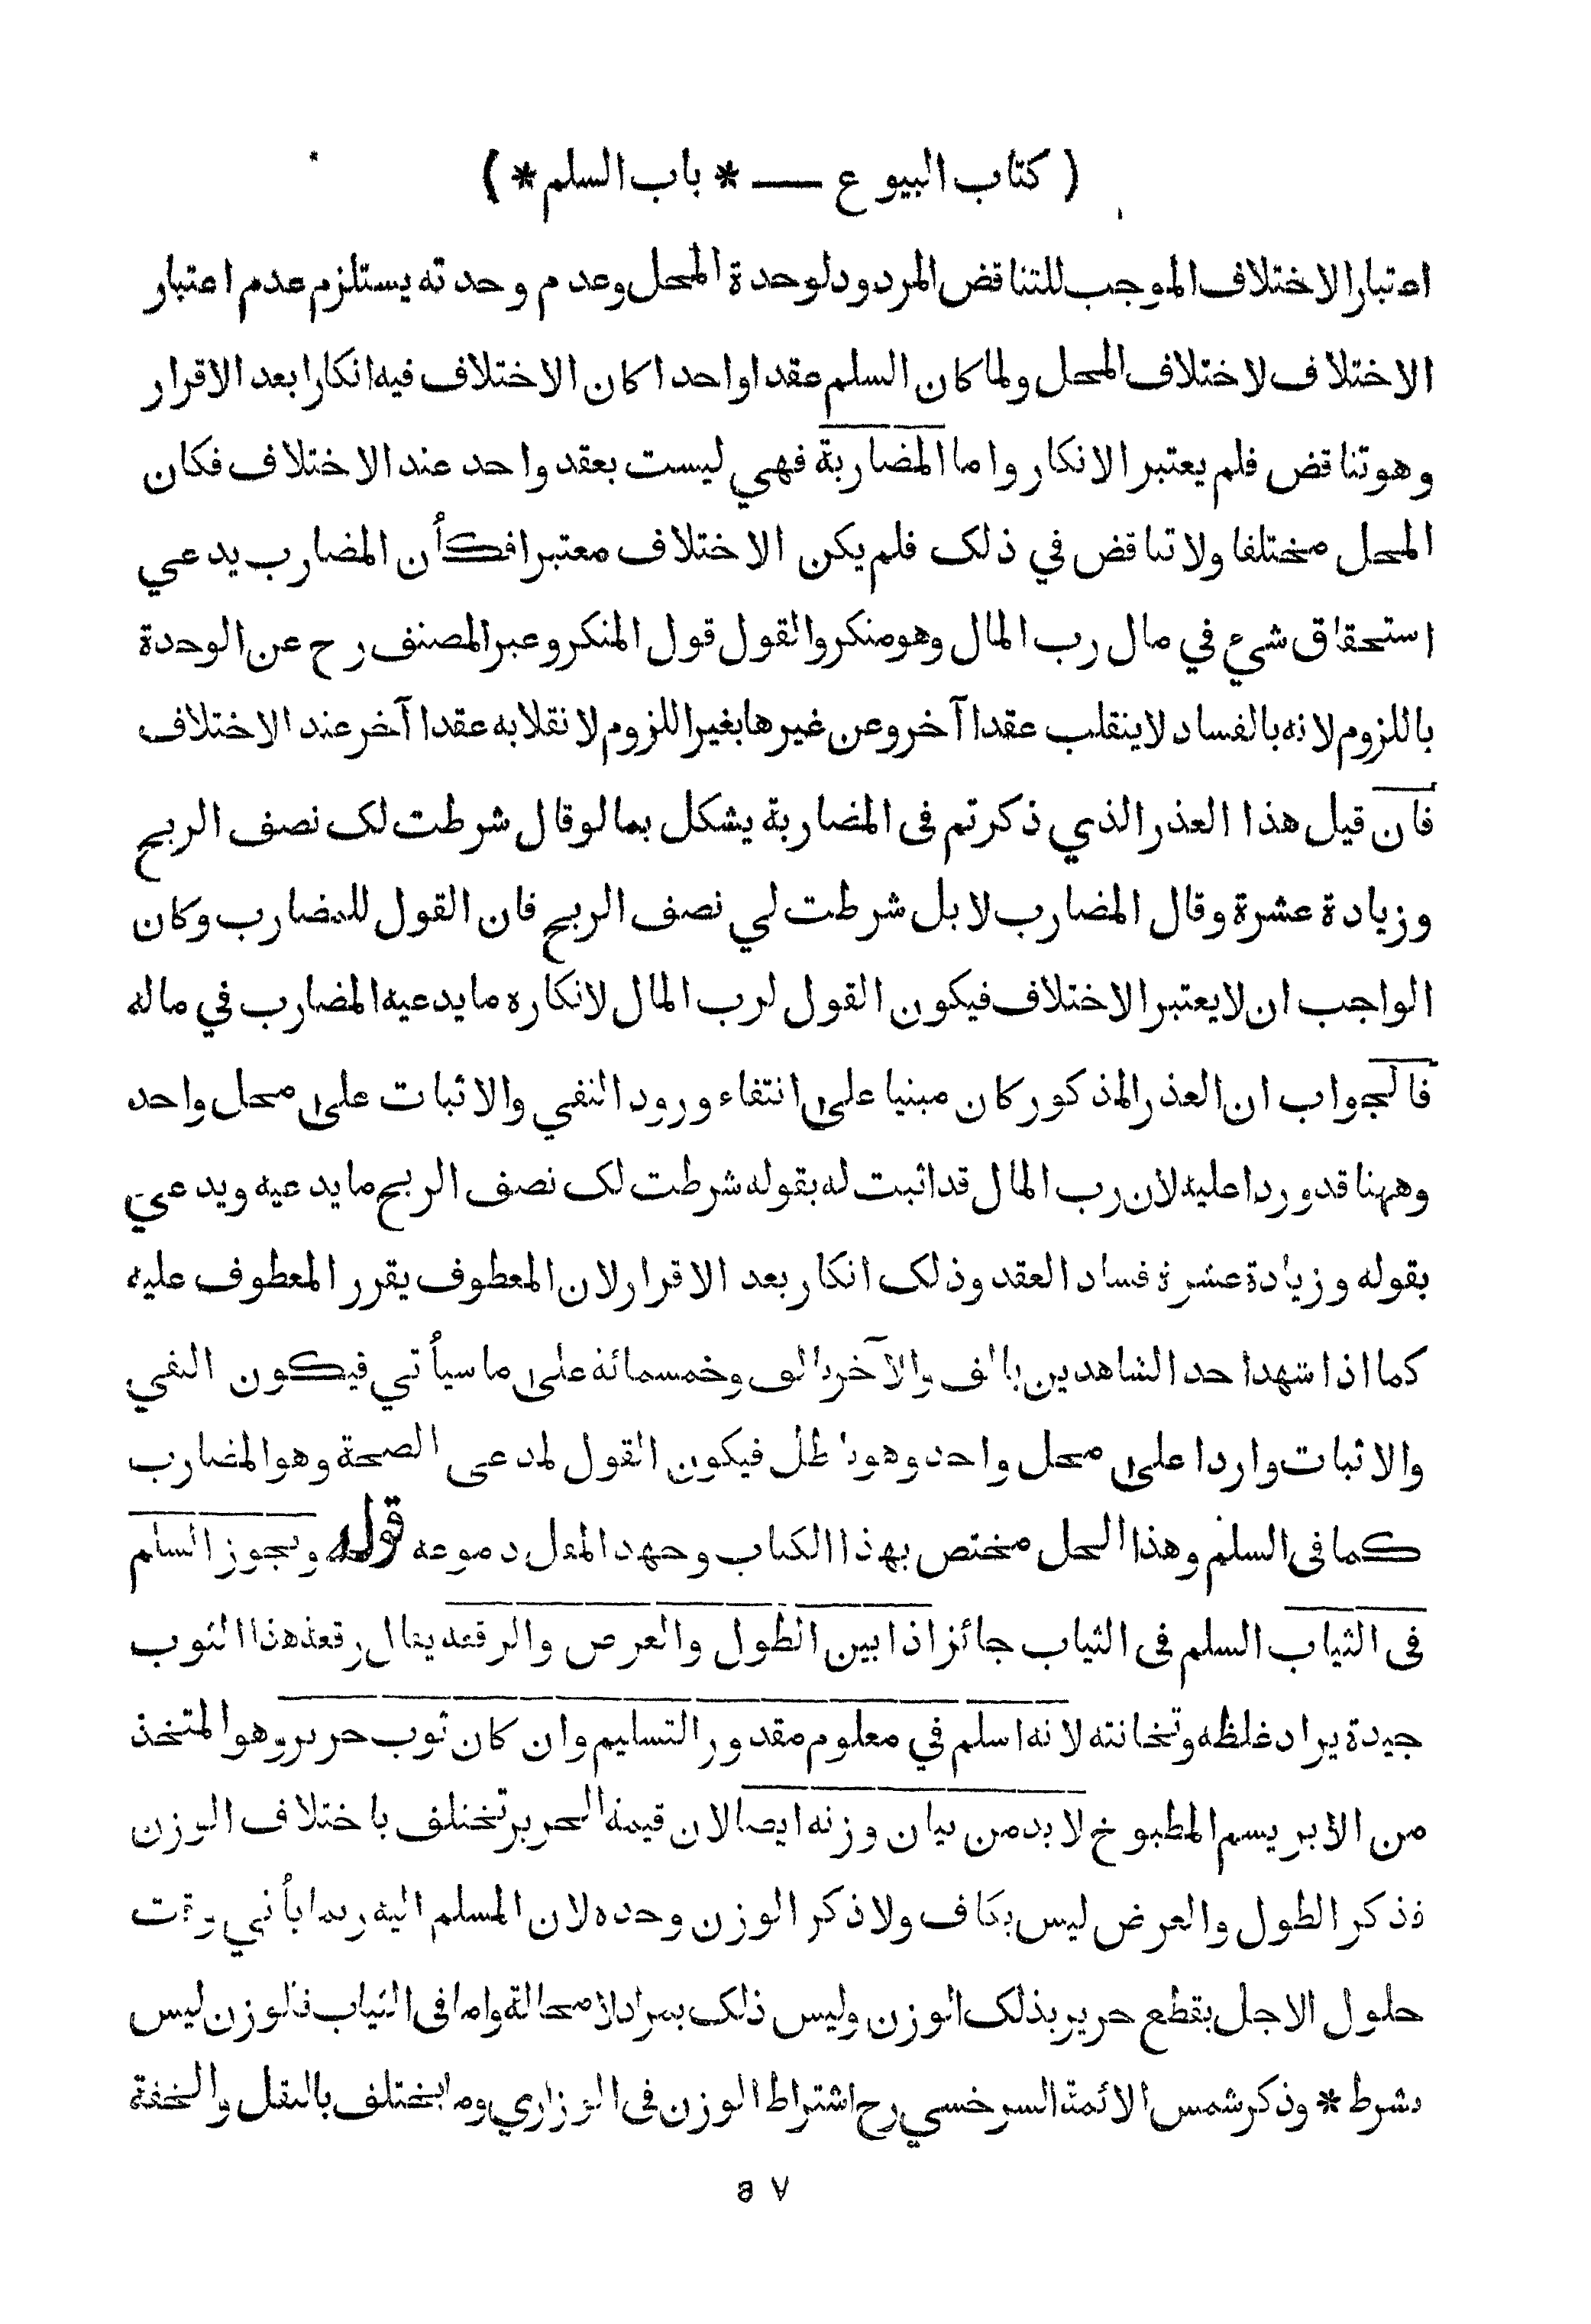 ( كتاب البيوع — * باب السلم * )
اعتبار الاختلاف الموجب للتناقض المردود لوحدة المحل وعدم وحدته يستلزم عدم اعتبار
الاختلاف لاختلاف المحل ولما كان السلم عقدا واحدا كان الاختلاف فيه انكارا بعد الاقرار
وهو تناقض فلم يعتبر الانكار واما المضاربة فهي ليست بعقد واحد عند الاختلاف فكان
المحل مختلفا ولا تناقض في ذلك فلم يكن الاختلاف معتبرا فكأن المضارب يدعي
استحقاق شيء في مال رب المال وهو منكر والقول قول المنكر وعبر المصنف رح عن الوحدة
باللزوم لانه بالفساد لا ينقلب عقدا آخر وعن غيرها بغير اللزوم لانقلابه عقدا آخر عند الاختلاف
فان قيل هذا العذر الذي ذكرتم فى المضاربة يشكل بما لو قال شرطت لك نصف الربح
وزيادة عشرة وقال المضارب لا بل شرطت لي نصف الربح فان القول للمضارب وكان
الواجب ان لا يعتبر الاختلاف فيكون القول لرب المال لانكاره ما يدعيه المضارب في ماله
فالجواب ان العذر المذكور كان مبنيا على انتفاء ورود النفي والاثبات على محل واحد
وههنا قد وردا عليه لان رب المال قد اثبت له بقوله شرطت لك نصف الربح ما يدعيه ويدعي
بقوله وزيادة عشرة فساد العقد وذلك انكار بعد الاقرار لان المعطوف يقرر المعطوف عليه
كما اذا شهد احد الشاهدين بالف والآخر بالف وخمسمائة على ما سيأتي فيكون النفي
والاثبات واردا على محل واحد وهو باطل فيكون القول لمدعى الصحة وهو المضارب
كما فى السلم وهذا الحل مختص بهذا الكتاب وجهد المقل دموعه قوله ويجوز السلم
فى الثياب السلم فى الثياب جائز اذا بين الطول والعرض والرقعة يقال رقعة هذا الثوب
جيدة يراد غلظه وثخانته لانه اسلم في معلوم مقدور التسليم وان كان ثوب حرير وهو المتخذ
من الأبريسم المطبوخ لا بد من بيان وزنه ايضا لان قيمة الحرير تختلف باختلاف الوزن
فذكر الطول والعرض ليس بكاف ولا ذكر الوزن وحده لان المسلم اليه ربما يأتي وقت
حلول الاجل بقطع حرير بذلك الوزن وليس ذلك بمراد لا محالة واما فى الثياب فالوزن ليس
بشرط * وذكر شمس الائمة السرخسي رح اشتراط الوزن فى الوزاري وما يختلف بالثقل والخفة